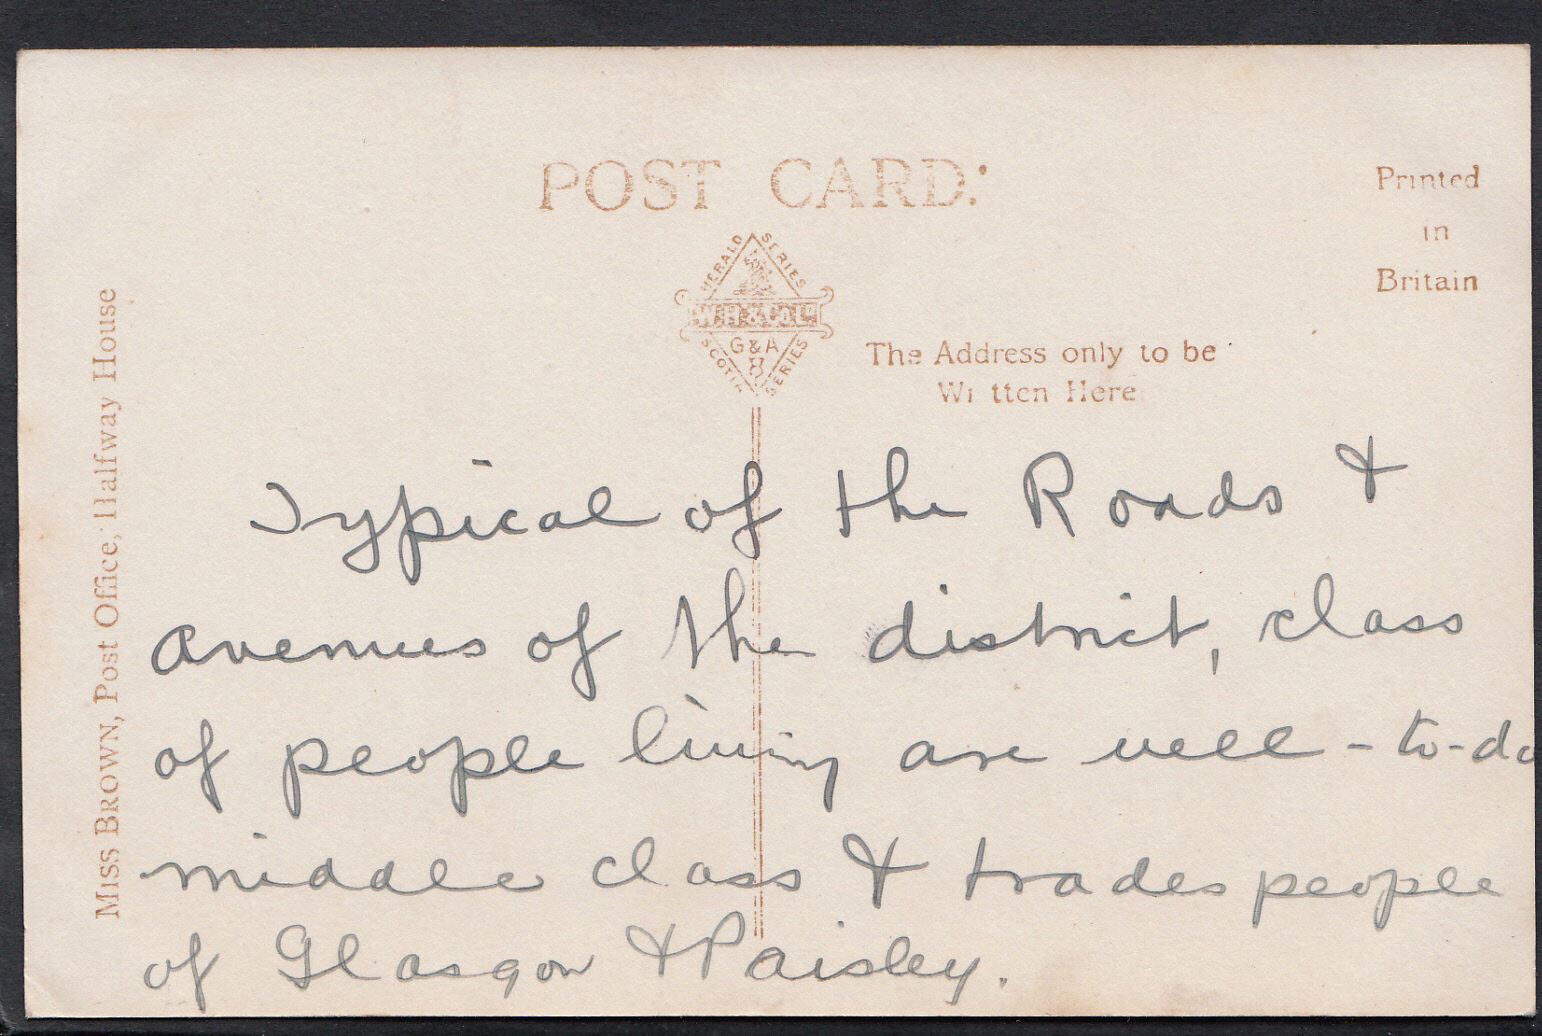 POST CARD:
Printed
in
Britain
HERALD SERIES
W.H. & Co Ld
G & A
8
SCOTIA SERIES
The Address only to be
Written Here
Miss BROWN, Post Office, Halfway House
Typical of the Roads &
avenues of the district, class
of people living are well-to-do
middle class & tradespeople
of Glasgow & Paisley.